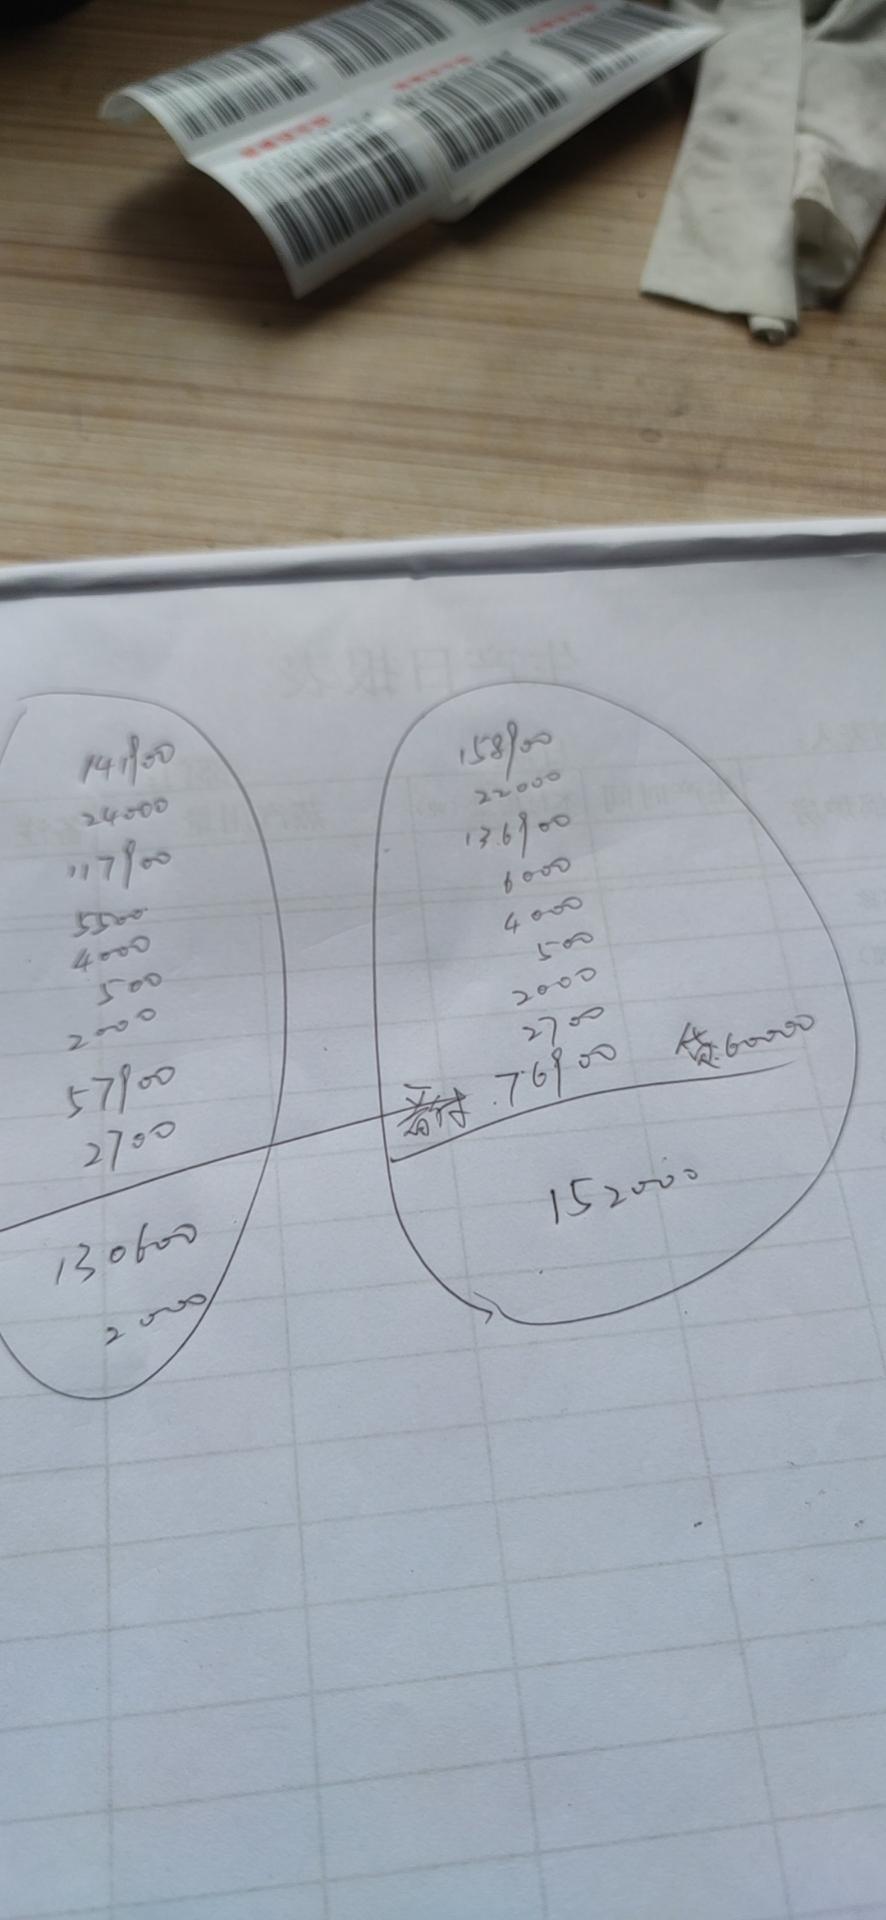 141900
24000
117900
5500
4000
500
2000
57900
2700
130600
2000
158900
22000
136900
6000
4000
500
2000
2700
76900 货.60000
152000